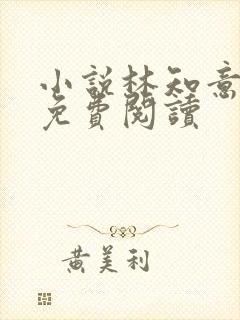 小說林知意
免費閱讀
黃美利